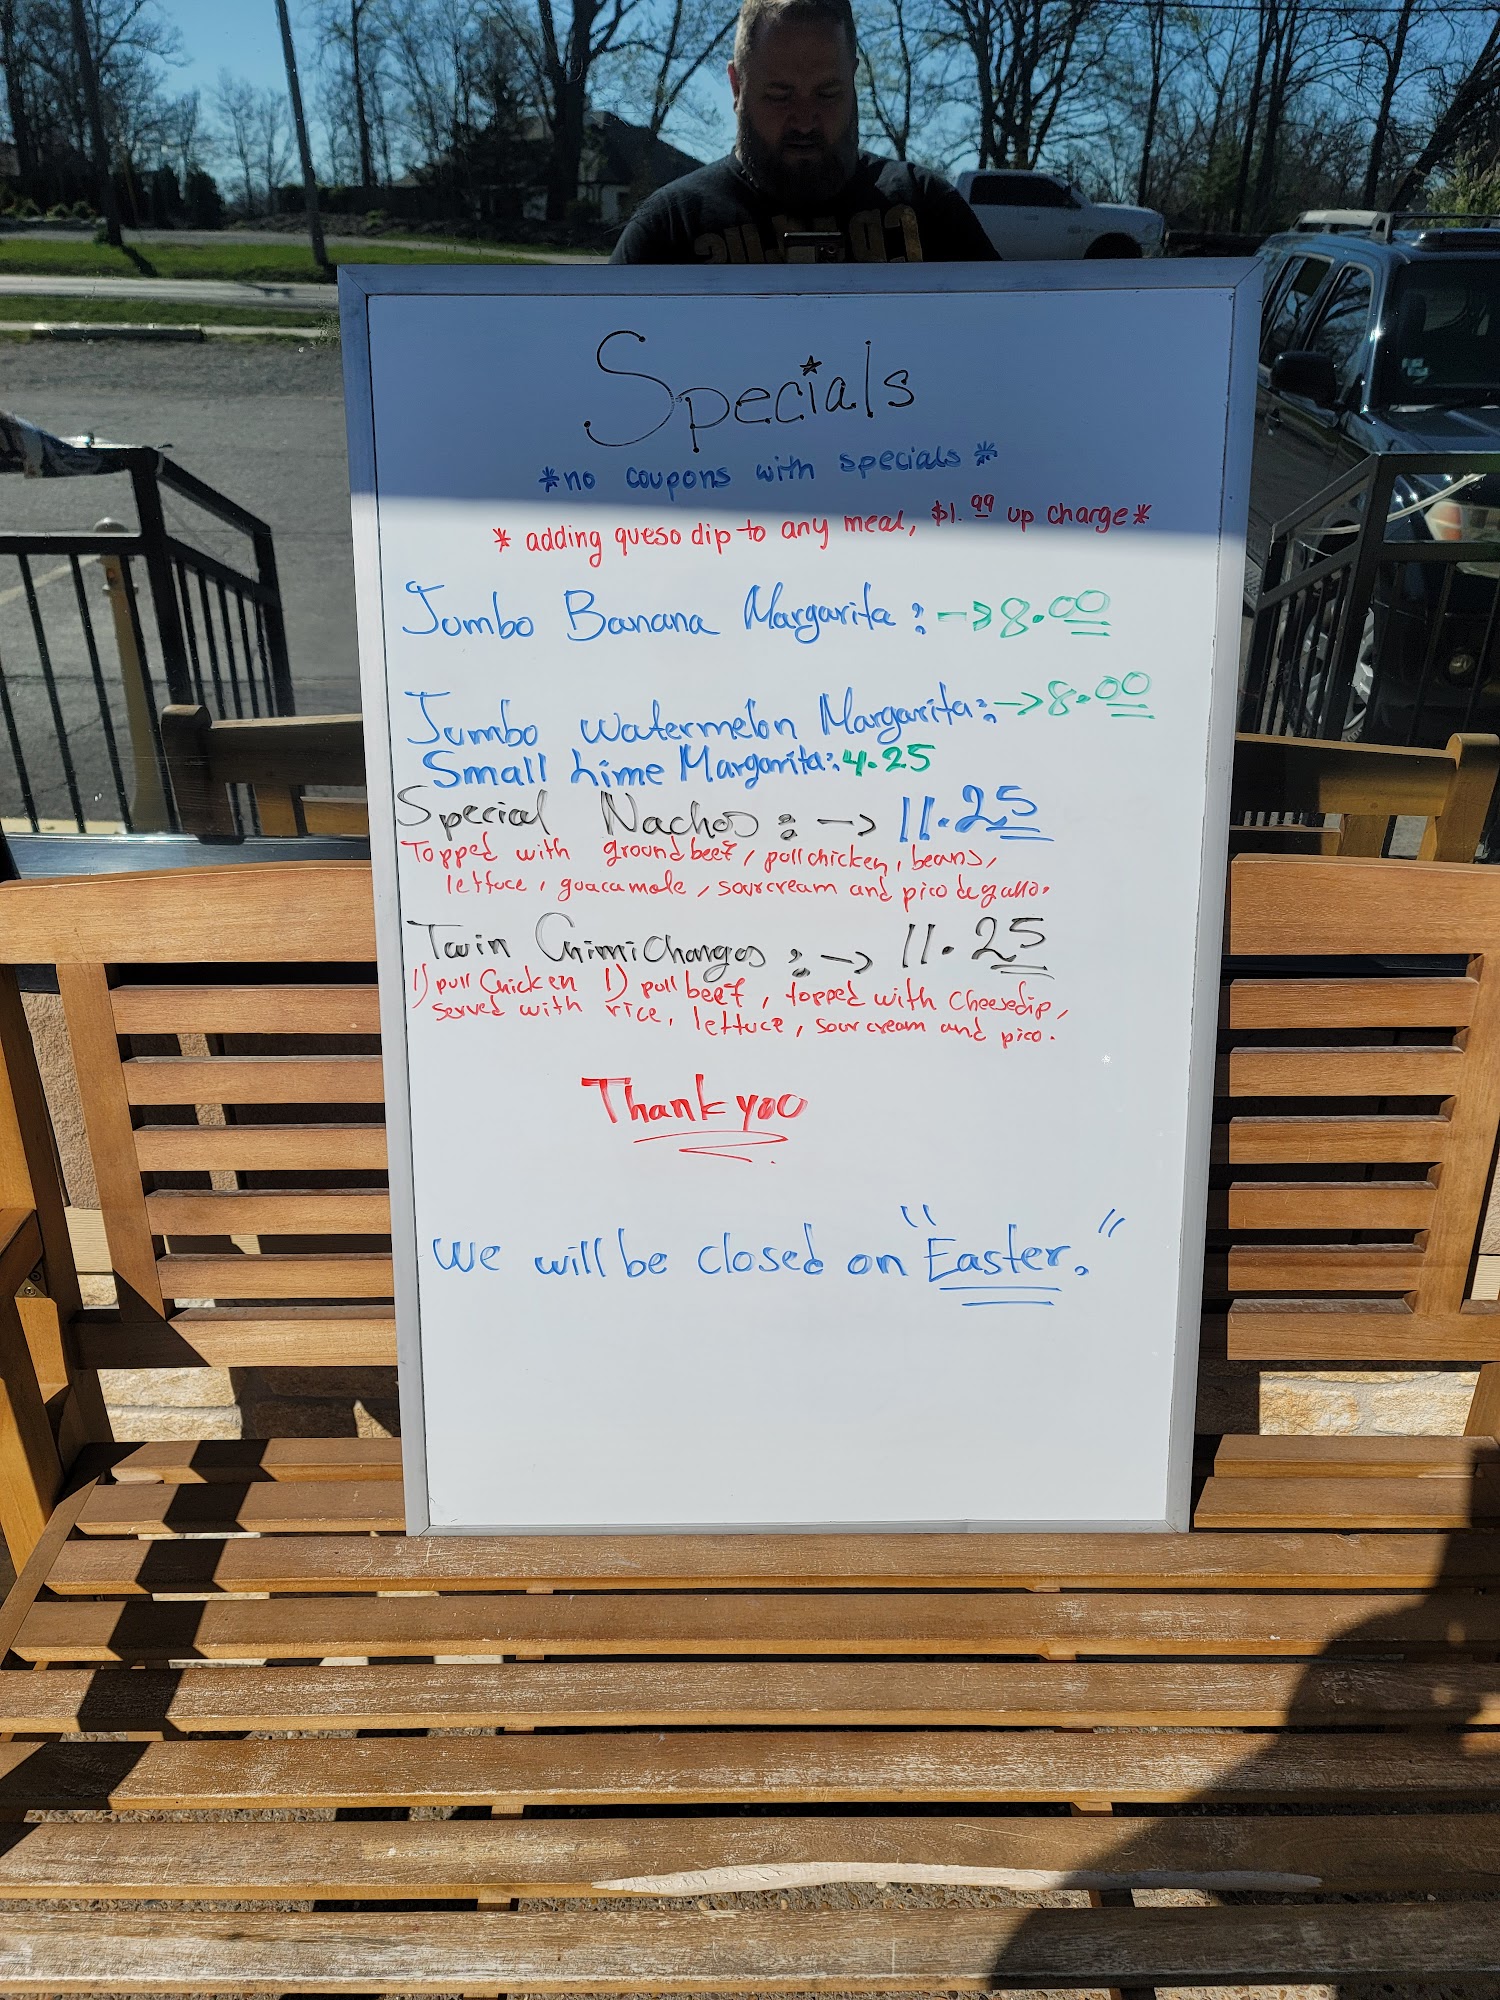 Specials
*no coupons with specials*
* adding queso dip to any meal, $1.99 up charge*
Jumbo Banana Margarita: -> 8.00
Jumbo Watermelon Margarita: -> 8.00
Small Lime Margarita: 4.25
Special Nachos: -> 11.25
Topped with ground beef, pull chicken, beans,
lettuce, guacamole, sour cream and pico de gallo.
Twin Chimichangas: -> 11.25
1) pull Chicken 1) pull beef, topped with Cheesedip,
served with rice, lettuce, sour cream and pico.
Thank you
We will be closed on "Easter."